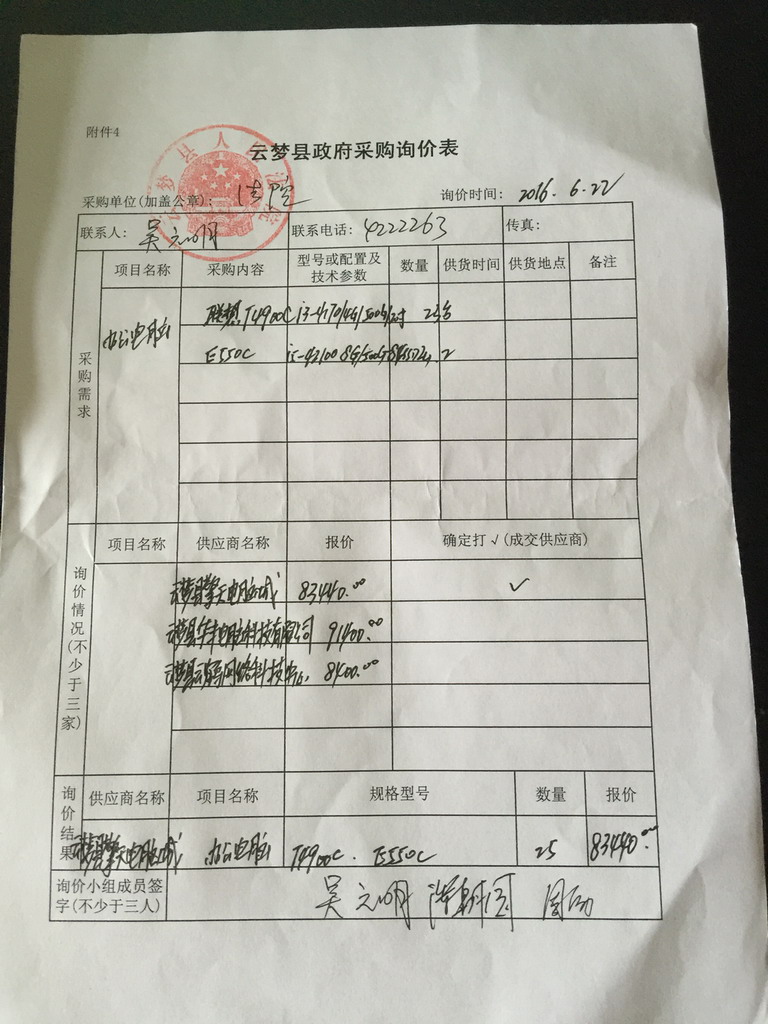 附件4
云梦县政府采购询价表
采购单位(加盖公章): 法院 询价时间: 2016.6.22
云梦县人民法院
联系人: 吴元明 联系电话: 4222263 传真:
采购需求
项目名称 采购内容 型号或配置及技术参数 数量 供货时间 供货地点 备注
办公电脑 联想T4900C i3-4170/4G/500G/ 23台
E550C i5-4210 8G/500G 2
询价情况(不少于三家)
项目名称 供应商名称 报价 确定打√(成交供应商)
云梦县擎天电脑城 83440.00 ✓
云梦县华 电脑科技有限公司 91400.00
云梦县 网络科技 8400.00
询价结果
供应商名称 项目名称 规格型号 数量 报价
云梦县擎天电脑城 办公电脑 T4900C. E550C 25 83440.00
询价小组成员签字(不少于三人) 吴元明